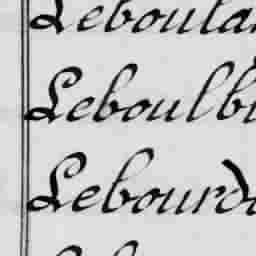 Leboula
Leboulbi
Lebourd